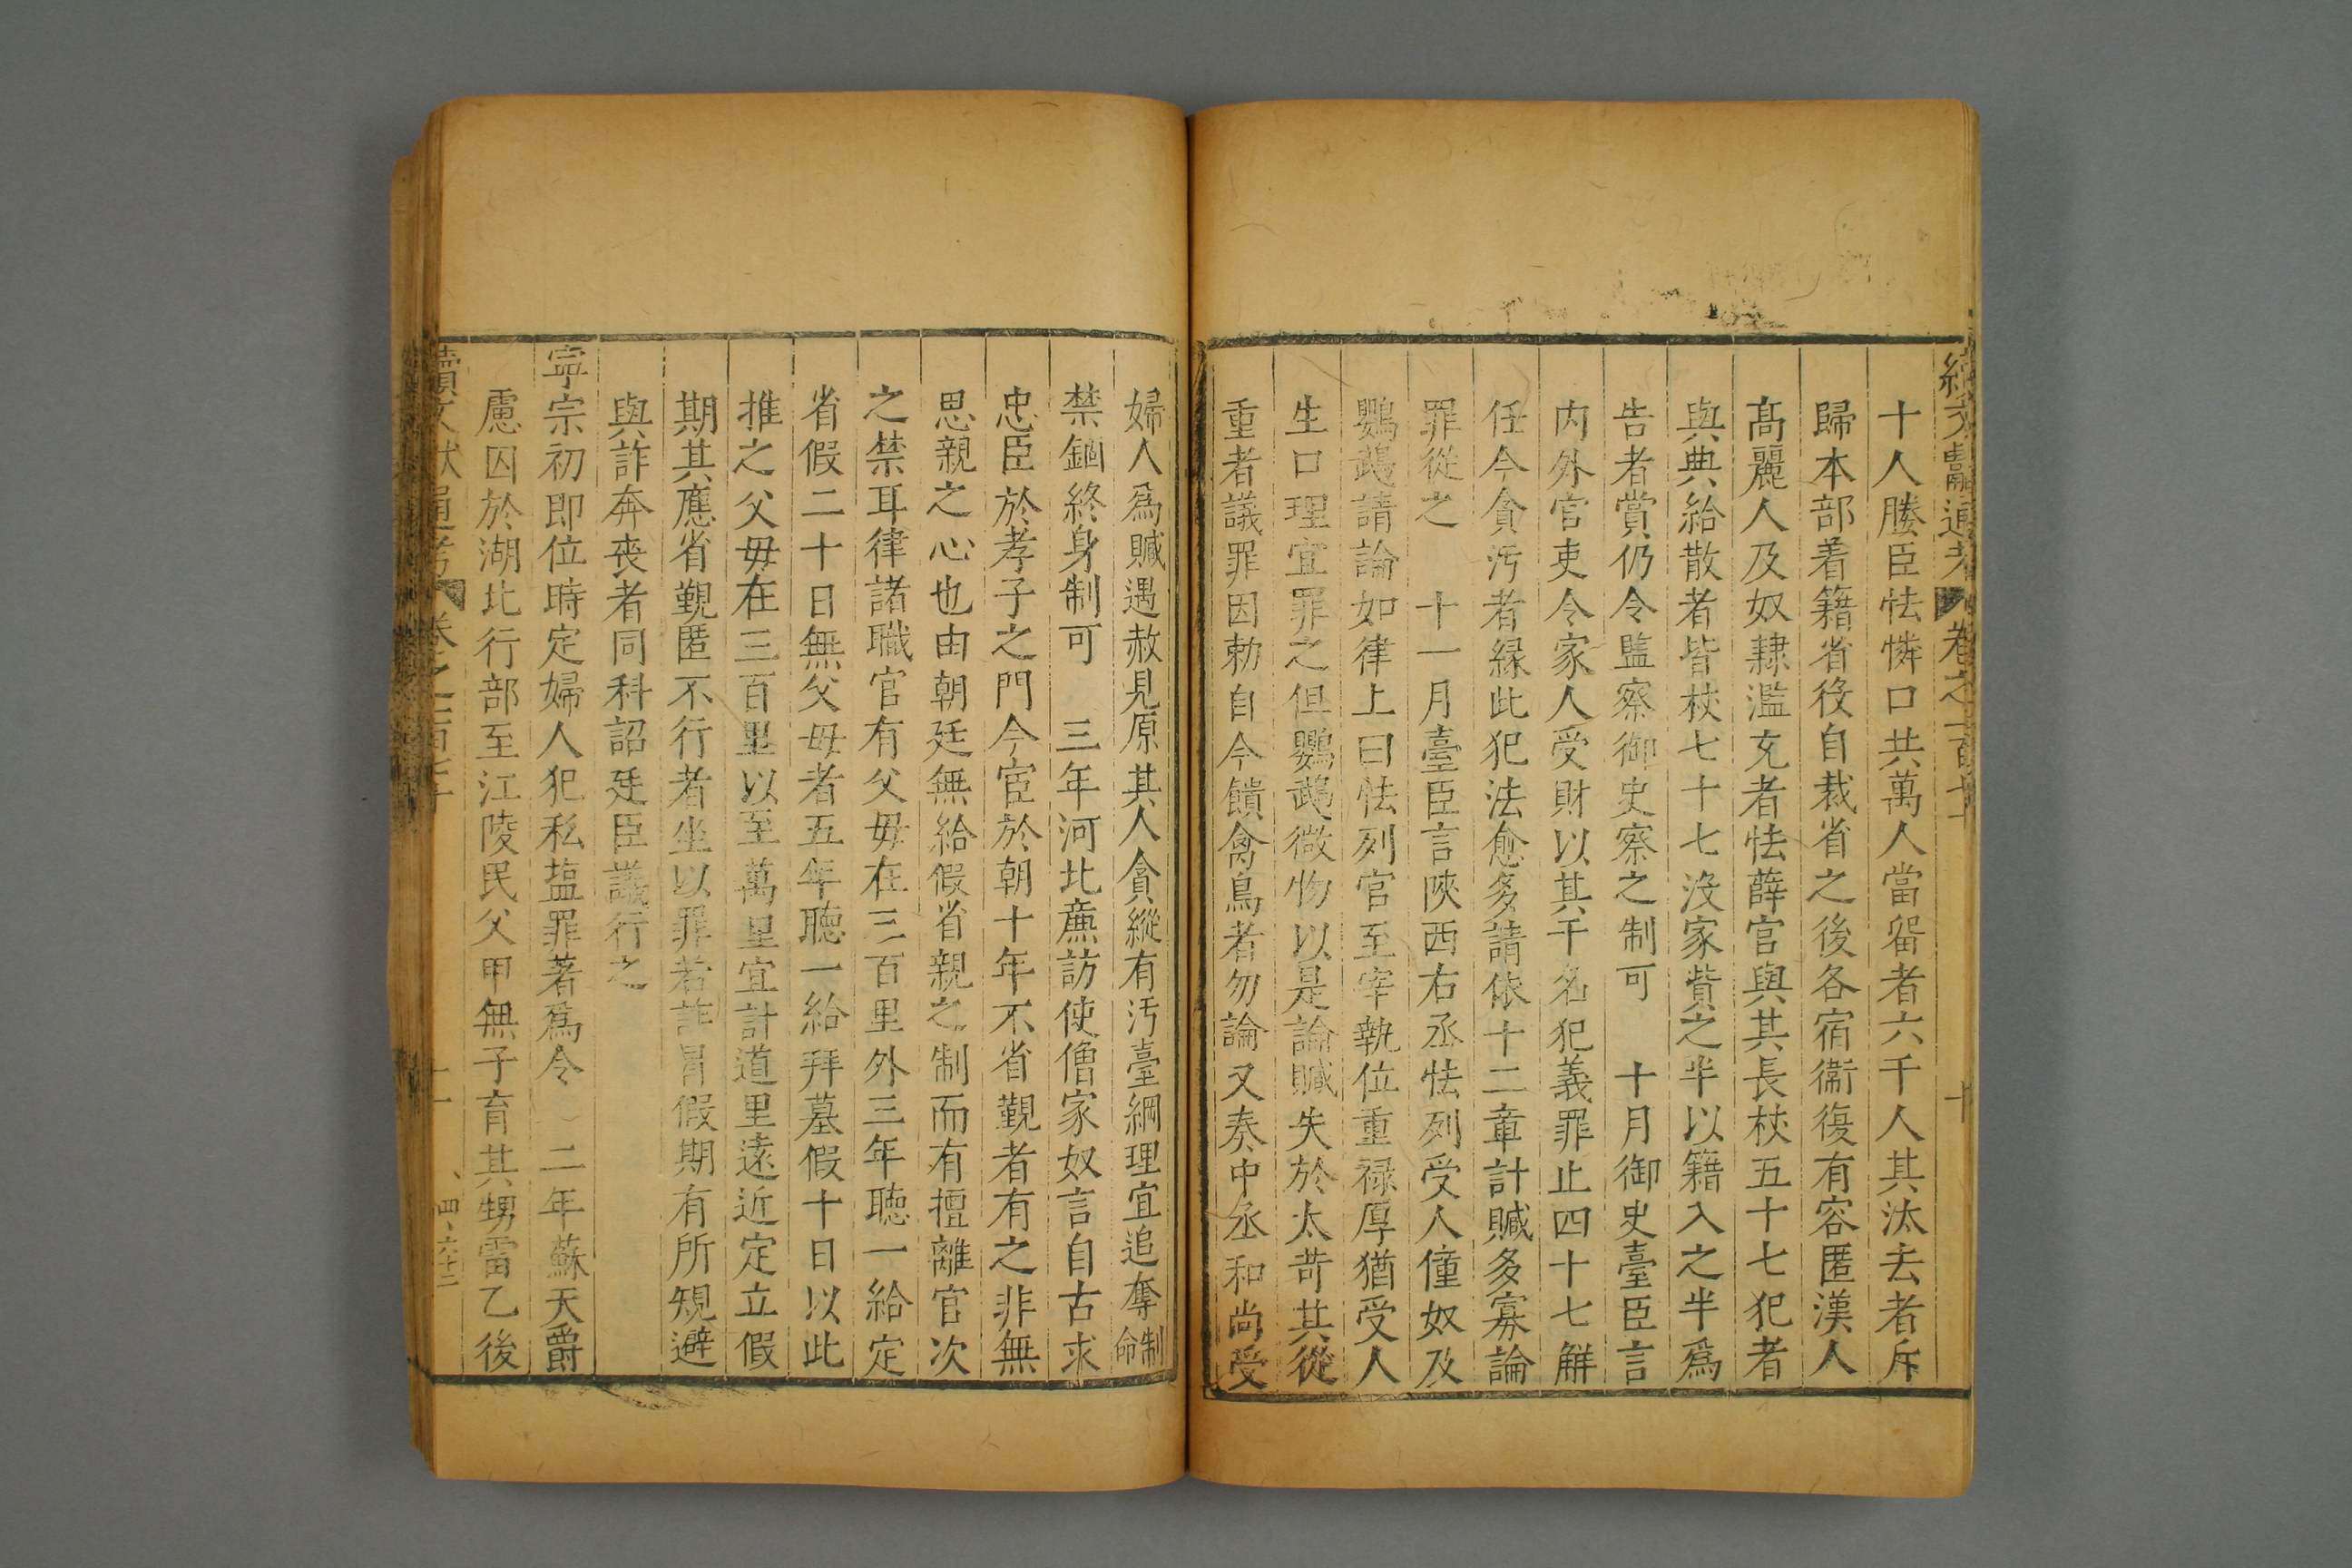 續文獻通考 卷之一百七十
十人媵臣怯憐口共萬人當畱者六千人其汰去者斥
歸本部着籍省役自裁省之後各宿衞復有容匿漢人
髙麗人及奴隷濫充者怯薛官與其長杖五十七犯者
與典給散者皆杖七十七沒家貲之半以籍入之半爲
告者賞仍令監察御史察之制可　十月御史臺臣言
内外官吏令家人受財以其干名犯義罪止四十七觧
任今貪汚者緣此犯法愈多請依十二章計贓多寡論
罪從之　十一月臺臣言陜西右丞怯列受人僮奴及
鸚鵡請論如律上曰怯列官至宰執位重禄厚猶受人
生口理宜罪之但鸚鵡微物以是論贓失於太苛其從
重者議罪因勅自今饋禽鳥者勿論又奏中丞和尚受
婦人爲贓遇赦見原其人貪縱有汚臺綱理宜追奪制命
禁錮終身制可　三年河北亷訪使僧家奴言自古求
忠臣於孝子之門今宦於朝十年不省覲者有之非無
思親之心也由朝廷無給假省親之制而有擅離官次
之禁耳律諸職官有父毋在三百里外三年聽一給定
省假二十日無父毋者五年聽一給拜墓假十日以此
推之父毋在三百里以至萬里宜計道里遠近定立假
期其應省覲匿不行者坐以罪若詐冒假期有所規避
與詐奔喪者同科詔廷臣議行之
寜宗初即位時定婦人犯私塩罪著爲令　二年蘇天爵
慮囚於湖北行部至江陵民父甲無子育其甥雷乙後